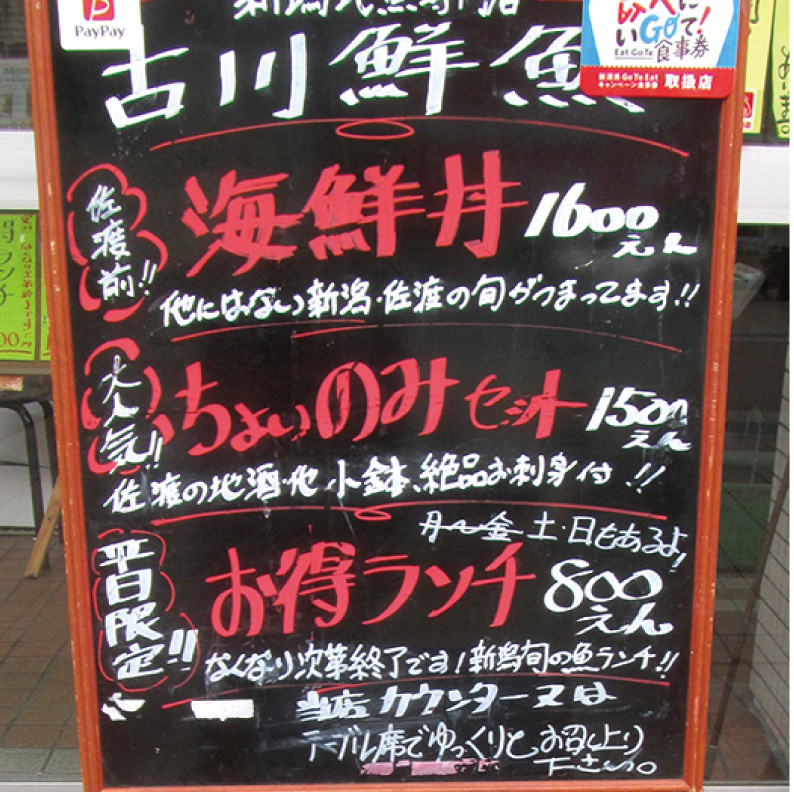 PayPay
新潟地魚専門店
古川鮮魚
Go
Eat Go To
食事券
新潟県 Go To Eat
キャンペーン食事券 取扱店
佐渡前!!
海鮮丼 1600えん
他にはない新潟・佐渡の旬がつまってます!!
大人気!!
ちょいのみセット 1500えん
佐渡の地酒・他 小鉢、絶品お刺身付!!
月~金 土・日もあるよ!
平日限定!!
お得ランチ 800えん
なくなり次第終了です!新潟旬の魚ランチ!!
当店カウンター又は
テーブル席でゆっくりとお召し上り
下さい。